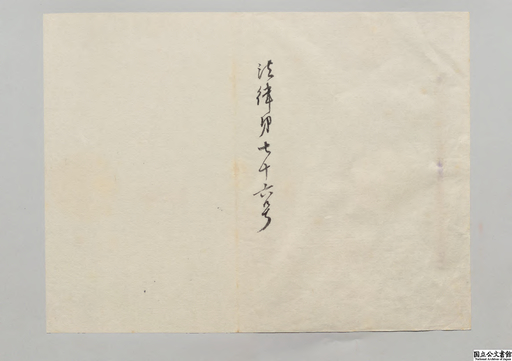 法律第七十六号
国立公文書館
National Archives of Japan